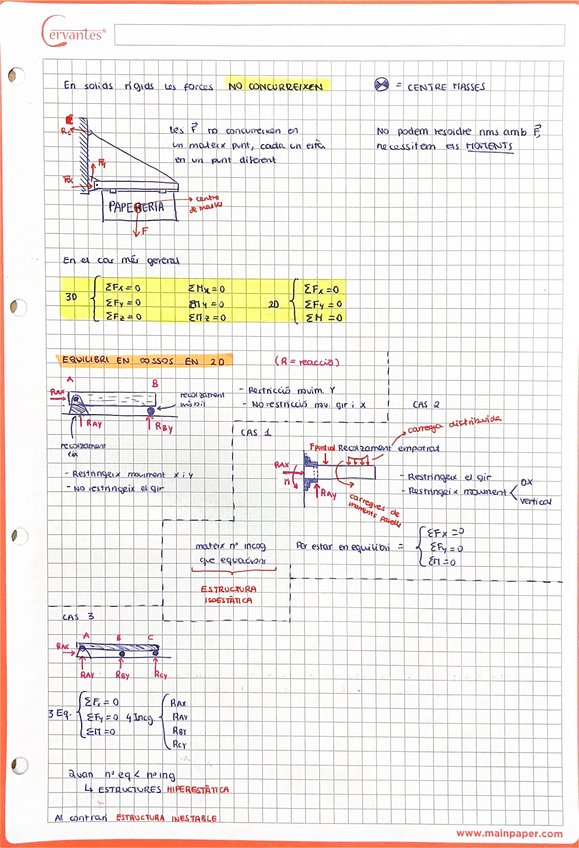 Cervantes®
En solids rígids les forces NO CONCURREIXEN
= CENTRE MASSES
Les F no concurreixen en
un mateix punt, cada un està
en un punt diferent
No podem resoldre nms amb F,
necessitem els MOMENTS
PAPERERIA
centre
de masses
F
En el cas més general
3D
ΣFx = 0
ΣFy = 0
ΣFz = 0
ΣMx = 0
ΣMy = 0
ΣMz = 0
2D
ΣFx = 0
ΣFy = 0
ΣM = 0
EQUILIBRI EN COSSOS EN 2D
(R = reacció)
A
B
RAX
RAY
RBY
recolzament
mòbil
- Restricció movim. Y
- No restricció mov. gir i X
recolzament
fix
- Restringeix moviment x i y
- No restringeix el gir
CAS 1
CAS 2
carrega distribuida
F puntual
Recolzament emportrat
RAX
M
RAY
carregues de
moments
- Restringeix el gir
- Restringeix moviment
OX
vertical
mateix nº incog
que equacions
ESTRUCTURA
ISOESTÀTICA
Per estar en equilibri =
ΣFx = 0
ΣFy = 0
ΣM = 0
CAS 3
A
B
C
RAX
RAY
RBY
RCY
3 Eq.
ΣFx = 0
ΣFy = 0
ΣM = 0
4 Incg
RAX
RAY
RBY
RCY
Quan nº eq < nº ing
↳ ESTRUCTURES HIPERESTÀTICA
Al contrari ESTRUCTURA INESTABLE
www.mainpaper.com